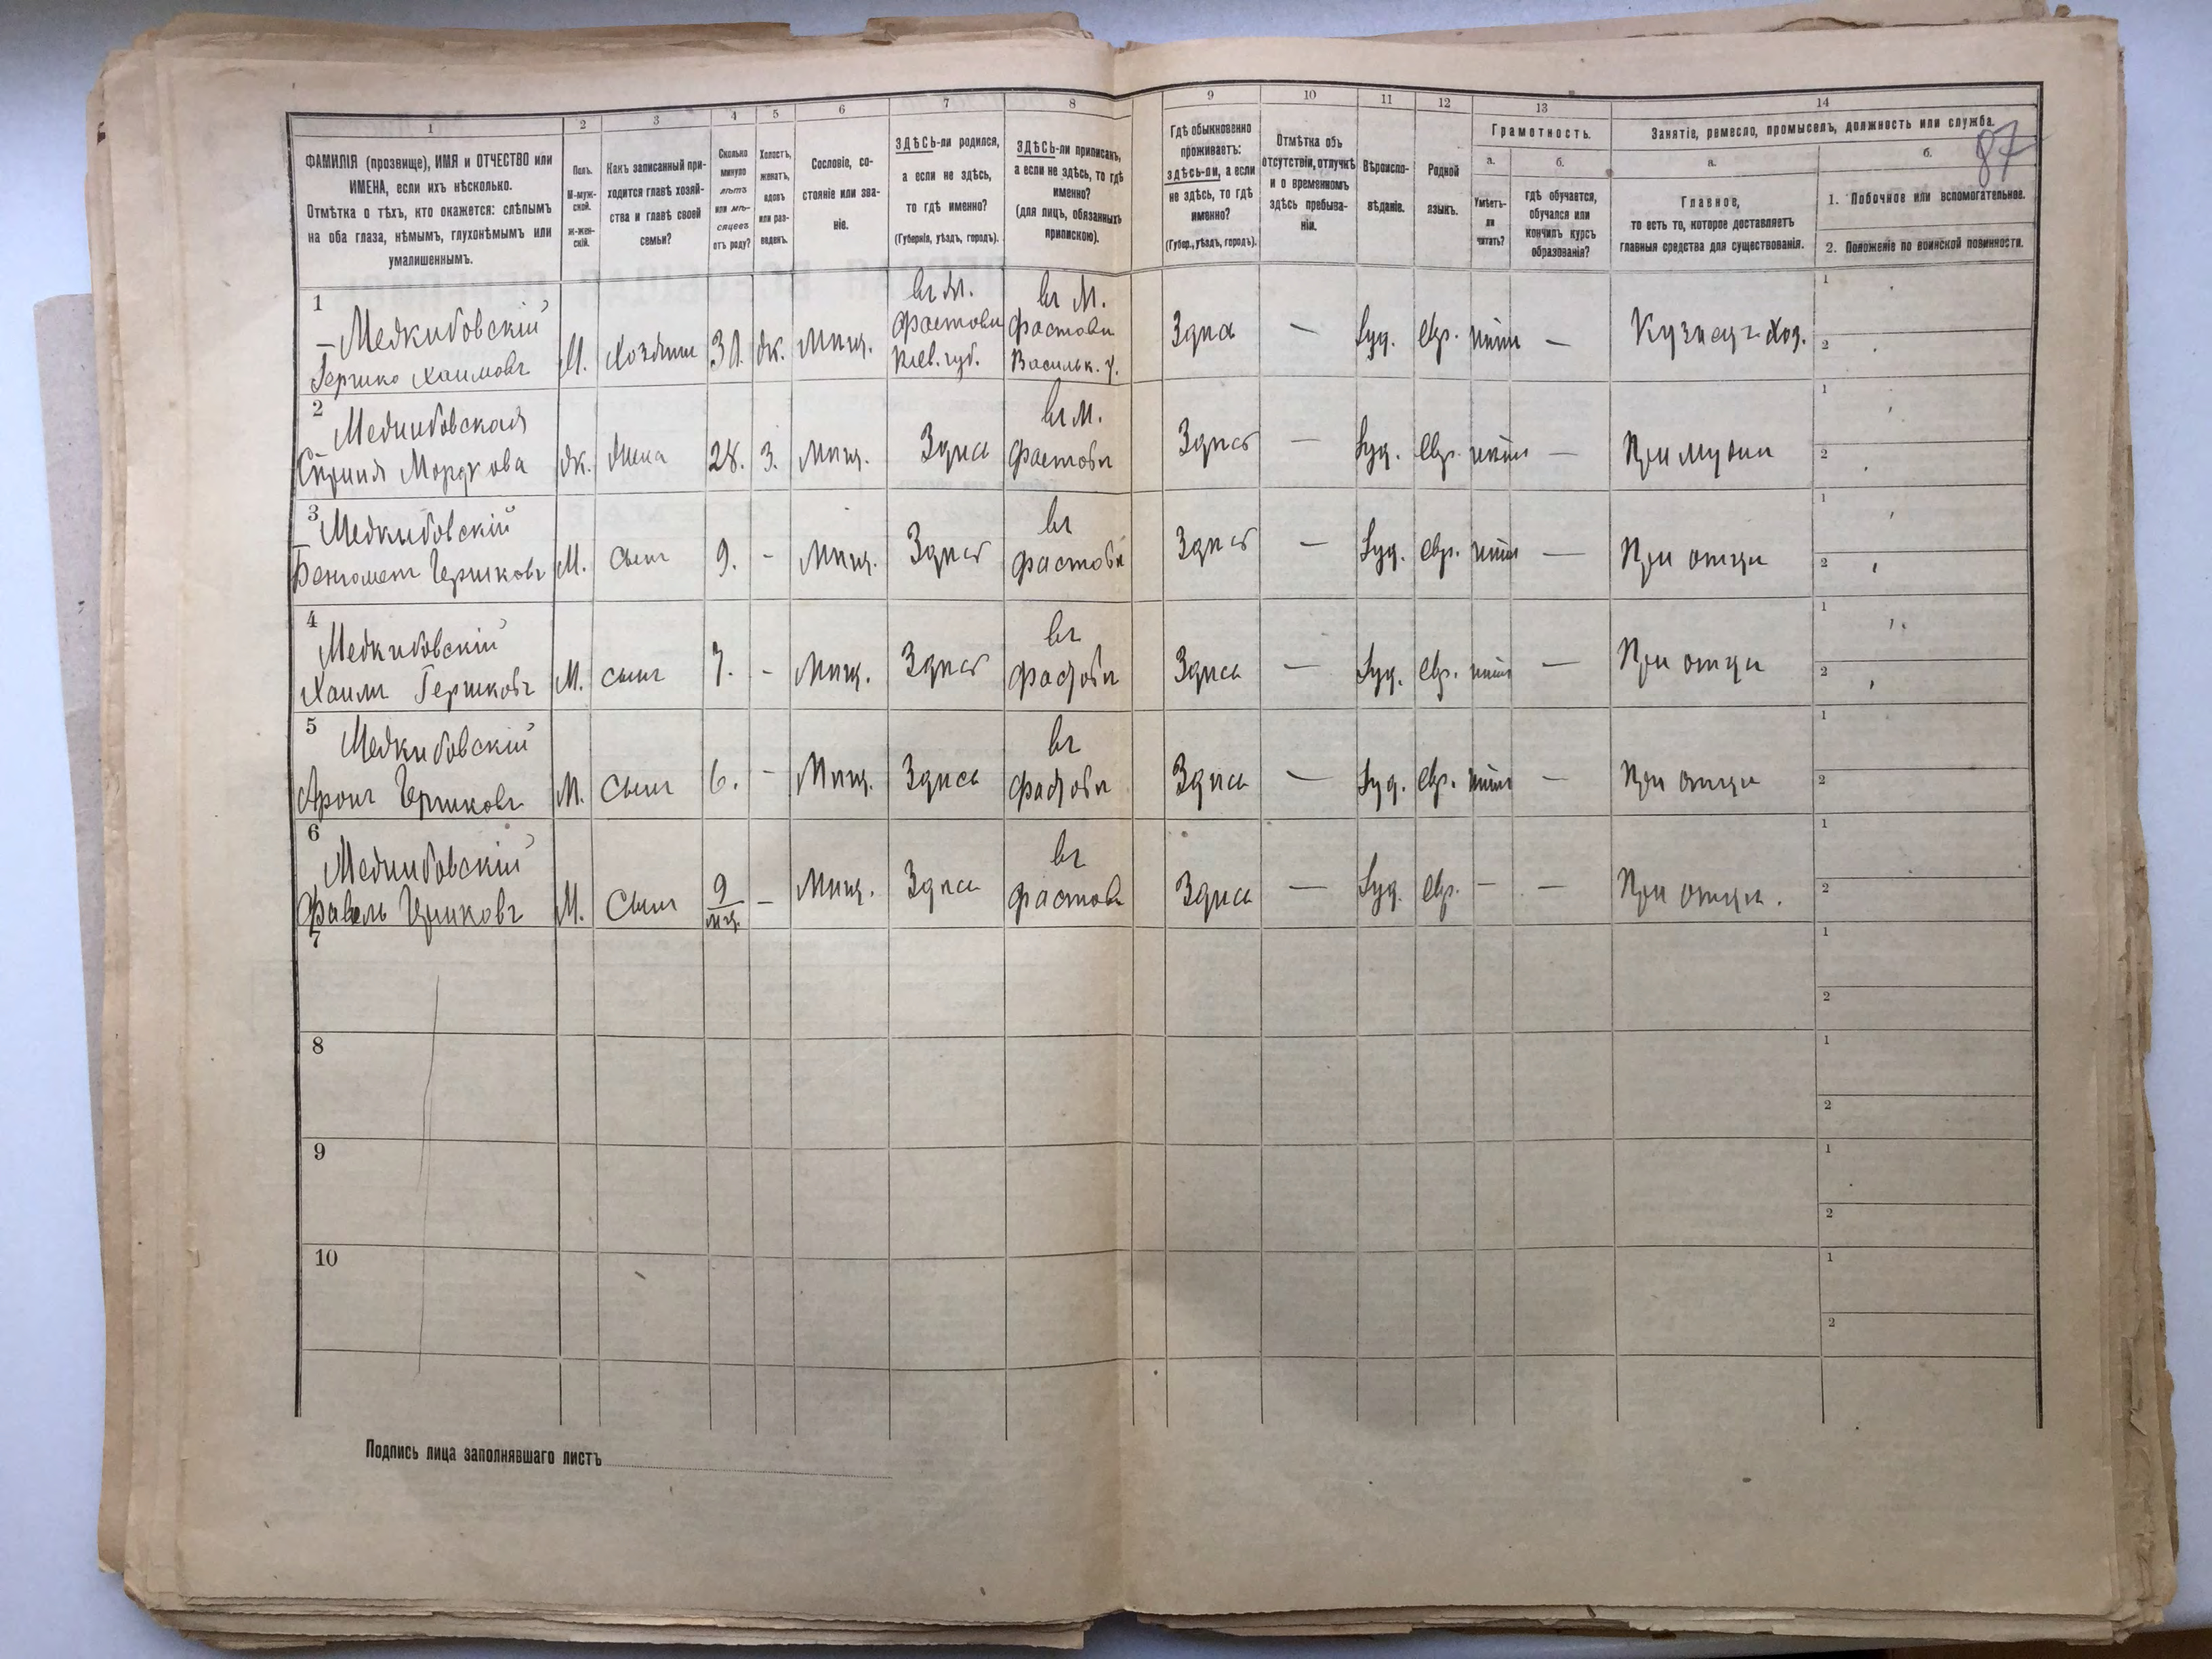 87
1 2 3 4 5 6 7 8 9 10 11 12 13 14
ФАМИЛІЯ (прозвище), ИМЯ и ОТЧЕСТВО или
ИМЕНА, если ихъ нѣсколько.
Отмѣтка о тѣхъ, кто окажется: слѣпымъ
на оба глаза, нѣмымъ, глухонѣмымъ или
умалишеннымъ.
Полъ.
М-муж-
ской.
Ж-жен-
скій.
Какъ записанный при-
ходится главѣ хозяй-
ства и главѣ своей
семьи?
Сколько
минуло
лѣтъ
или мѣ-
сяцевъ
отъ роду?
Холостъ,
женатъ,
вдовъ
или раз-
веденъ.
Сословіе, со-
стояніе или зва-
ніе.
ЗДѢСЬ-ли родился,
а если не здѣсь,
то гдѣ именно?
(Губернія, уѣздъ, городъ).
ЗДѢСЬ-ли приписанъ,
а если не здѣсь, то гдѣ
именно?
(для лицъ, обязанныхъ
припискою).
Гдѣ обыкновенно
проживаетъ:
здѣсь-ли, а если
не здѣсь, то гдѣ
именно?
(Губер., уѣздъ, городъ).
Отмѣтка объ
отсутствіи, отлучкѣ
и о временномъ
здѣсь пребыва-
ніи.
Вѣроиспо-
вѣданіе.
Родной
языкъ.
Грамотность.
а.
Умѣетъ-
ли
читать?
б.
гдѣ обучается,
обучался или
кончилъ курсъ
образованія?
Занятіе, ремесло, промыселъ, должность или служба.
а.
Главное,
то есть то, которое доставляетъ
главныя средства для существованія.
б.
1. Побочное или вспомогательное.
2. Положеніе по воинской повинности.
1
Меджибовскій
Гершко Хаимовъ
М. Хозяинъ 30. Ж. Мѣщ.
въ М.
Фастовѣ
Кіев. губ.
въ М.
Фастовѣ
Васильк. у.
Здѣсь — Іуд. евр. нѣтъ — Кузнецъ Хоз.
1
2
2
Меджибовская
Мордкова
Ж. Жена 28. З. Мѣщ. Здѣсь
въ М.
Фастовѣ
Здѣсь — Іуд. евр. нѣтъ — При мужѣ
1
2
3
Меджибовскій
Гершковъ
М. Сынъ 9. - Мѣщ. Здѣсь
въ
Фастовѣ
Здѣсь — Іуд. евр. нѣтъ — При отцѣ
1
2
4
Меджибовскій
Хаимъ Гершковъ
М. Сынъ 7. - Мѣщ. Здѣсь
въ
Фастовѣ
Здѣсь — Іуд. евр. нѣтъ — При отцѣ
1
2
5
Меджибовскій
Аронъ Гершковъ
М. Сынъ 6. - Мѣщ. Здѣсь
въ
Фастовѣ
Здѣсь — Іуд. евр. нѣтъ — При отцѣ
1
2
6
Меджибовскій
Фавель Гершковъ
М. Сынъ 9 мѣц. — Мѣщ. Здѣсь
въ
Фастовѣ
Здѣсь — Іуд. евр. — — При отцѣ.
1
2
7
1
2
8
1
2
9
1
2
10
1
2
Подпись лица заполнявшаго листъ